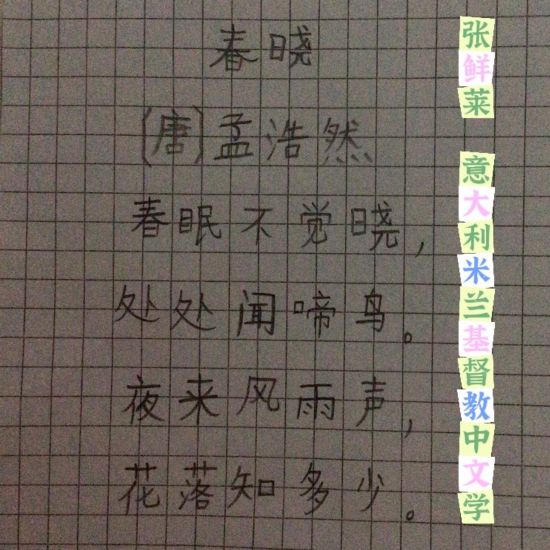 春晓
(唐)孟浩然
春眠不觉晓,
处处闻啼鸟。
夜来风雨声,
花落知多少。
张鲜莱 意大利米兰基督教中文学